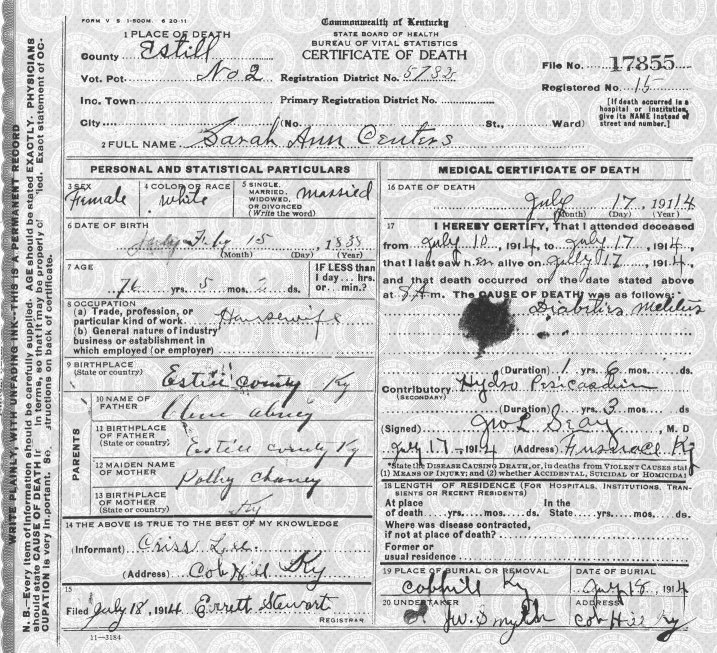 FORM V. S. 1-500M. 6 20-11
Commonwealth of Kentucky
STATE BOARD OF HEALTH
BUREAU OF VITAL STATISTICS
CERTIFICATE OF DEATH
1 PLACE OF DEATH
County Estill
Vot. Pct. No. 2 Registration District No.
File No. 17855
Registered No. 15
Inc. Town Primary Registration District No.
[If death occurred in a hospital or institution, give its NAME instead of street and number.]
City (No. St., Ward)
2 FULL NAME Sarah Ann Centers
PERSONAL AND STATISTICAL PARTICULARS
3 SEX Female
4 COLOR OR RACE White
5 SINGLE, MARRIED, WIDOWED, OR DIVORCED (Write the word) Married
6 DATE OF BIRTH
Feby 15, 1838
(Month) (Day) (Year)
7 AGE
76 yrs. 5 mos. 2 ds.
IF LESS than 1 day... hrs. or... min.?
8 OCCUPATION
(a) Trade, profession, or particular kind of work Housewife
(b) General nature of industry business or establishment in which employed (or employer)
9 BIRTHPLACE (State or country) Estill County Ky
PARENTS
10 NAME OF FATHER
11 BIRTHPLACE OF FATHER (State or country) Estill County Ky
12 MAIDEN NAME OF MOTHER Polhy Chaney
13 BIRTHPLACE OF MOTHER (State or country) Ky
14 THE ABOVE IS TRUE TO THE BEST OF MY KNOWLEDGE
(Informant) Criss Lee
(Address) Cob Hill Ky
15
Filed July 18, 1914 Errett Stewart
REGISTRAR
11-3184
MEDICAL CERTIFICATE OF DEATH
16 DATE OF DEATH
July 17, 1914
(Month) (Day) (Year)
17 I HEREBY CERTIFY, That I attended deceased
from July 10, 1914, to July 17, 1914,
that I last saw her alive on July 17, 1914,
and that death occurred on the date stated above
at A.m. The CAUSE OF DEATH was as follows:
Diabitus Melitus
(Duration) 1 yrs. 6 mos. ds.
Contributory (SECONDARY) Hydro Pericardium
(Duration) yrs. 3 mos. ds.
(Signed) Jno L Seay, M. D
July 17, 1914 (Address) Furnace Ky
*State the DISEASE CAUSING DEATH, or, in deaths from VIOLENT CAUSES stat
(1) MEANS OF INJURY; and (2) whether ACCIDENTAL, SUICIDAL or HOMICIDAL
18 LENGTH OF RESIDENCE (FOR HOSPITALS, INSTITUTIONS, TRANSIENTS OR RECENT RESIDENTS)
At place of death yrs. mos. ds. In the State yrs. mos. ds.
Where was disease contracted, if not at place of death?
Former or usual residence
19 PLACE OF BURIAL OR REMOVAL DATE OF BURIAL
Cobhill Ky July 18, 1914
20 UNDERTAKER ADDRESS
J.W. Smyth Cob Hill Ky
WRITE PLAINLY, WITH UNFADING INK—THIS IS A PERMANENT RECORD
N. B.—Every item of information should be carefully supplied. AGE should be stated EXACTLY. PHYSICIANS
should state CAUSE OF DEATH in terms, so that it may be properly Exact statement of OC-
CUPATION is very important. on back of certificate.